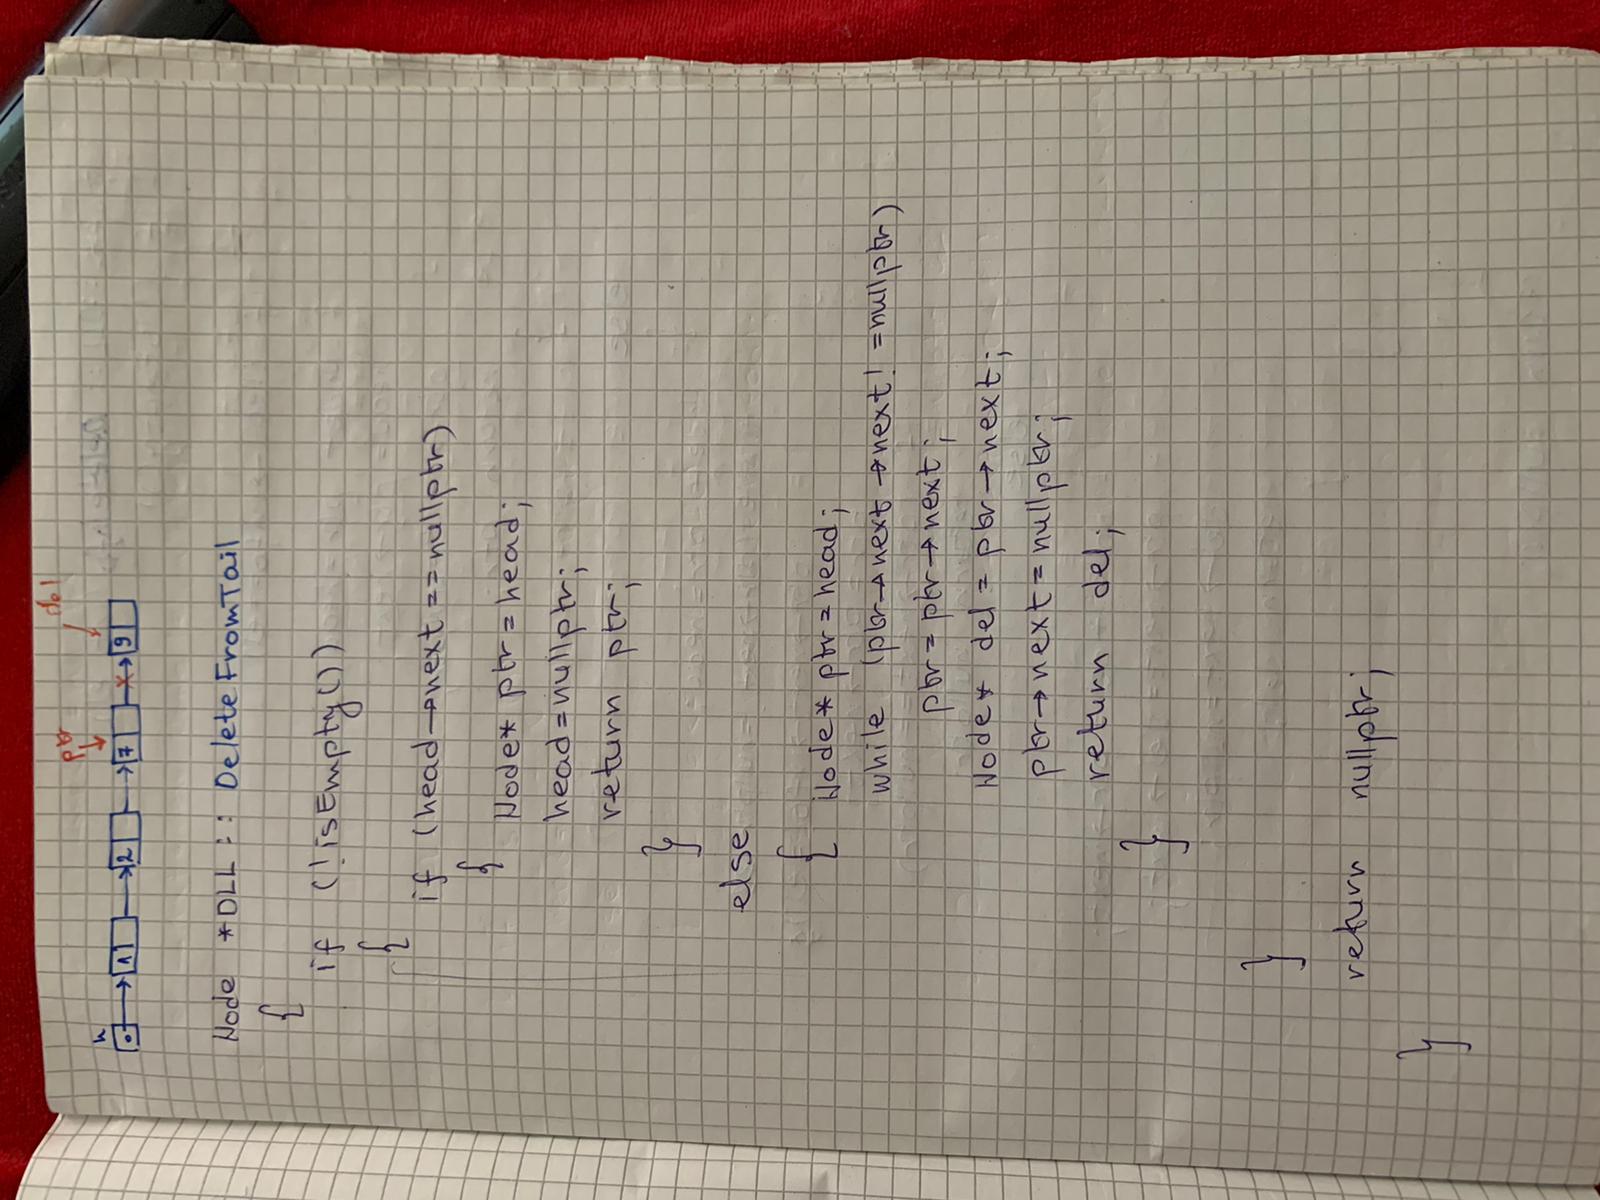 ptr del
h
1 2 7 9
Node *DLL :: DeleteFromTail
{
if (!isEmpty())
{
if (head→next == nullptr)
{
Node* ptr = head;
head = nullptr;
return ptr;
}
else
{ Node* ptr = head;
while (ptr→next→next! = nullptr)
ptr = ptr→next;
Node* del = ptr→next;
ptr→next = nullptr;
return del;
}
}
return nullptr;
}